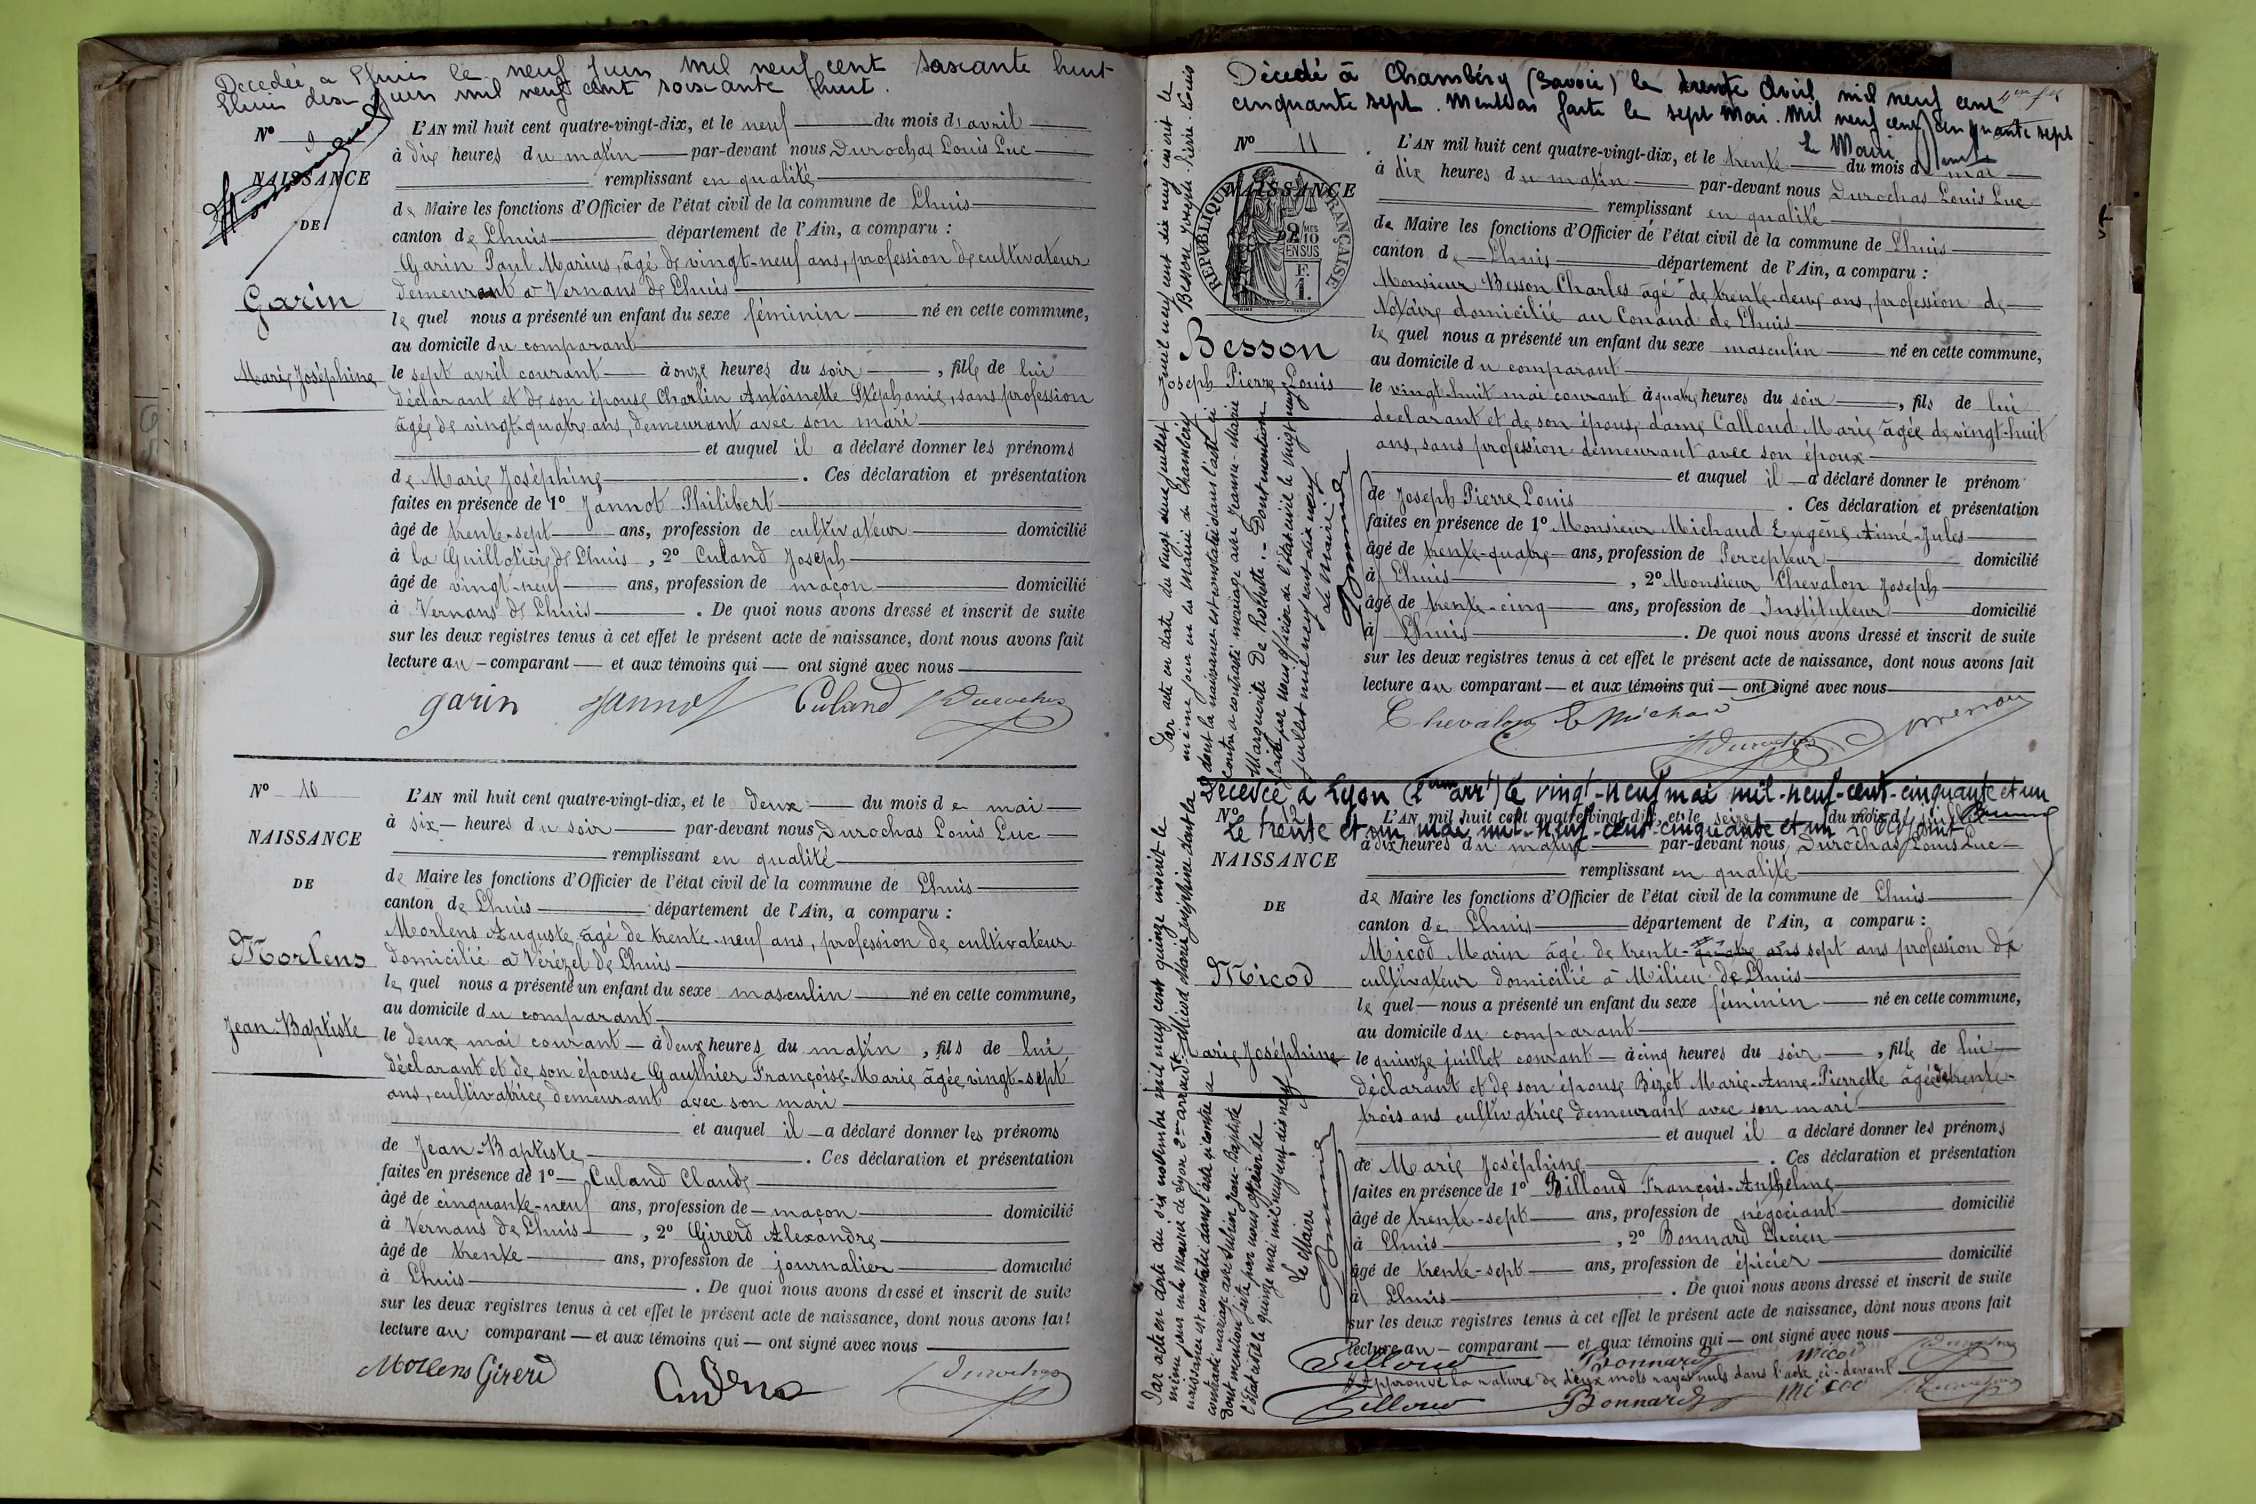 Décédée à Lhuis le neuf juin mil neuf cent soixante huit
Lhuis dix juin mil neuf cent soixante huit.
N° 9
NAISSANCE
DE
Garin
Marie Joséphine
L'AN mil huit cent quatre-vingt-dix, et le neuf du mois d'avril
à dix heures du matin par-devant nous Durochas Louis Luc
remplissant en qualité
de Maire les fonctions d'Officier de l'état civil de la commune de Lhuis
canton de Lhuis département de l'Ain, a comparu :
Garin Paul Marius, âgé de vingt-neuf ans, profession de cultivateur
demeurant à Vernans de Lhuis
le quel nous a présenté un enfant du sexe féminin né en cette commune,
au domicile du comparant
le sept avril courant à onze heures du soir, fille de lui
déclarant et de son épouse Charlin Antoinette Stéphanie, sans profession
âgée de vingt-quatre ans, demeurant avec son mari
et auquel il a déclaré donner les prénoms
de Marie Joséphine. Ces déclaration et présentation
faites en présence de 1° Jannot Philibert
âgé de trente-sept ans, profession de cultivateur domicilié
à la Guillotière de Lhuis, 2° Culand Joseph
âgé de vingt-neuf ans, profession de maçon domicilié
à Vernans de Lhuis. De quoi nous avons dressé et inscrit de suite
sur les deux registres tenus à cet effet le présent acte de naissance, dont nous avons fait
lecture au comparant et aux témoins qui ont signé avec nous
garin Jannot Culand Durochas
N° 10
NAISSANCE
DE
Morlens
Jean-Baptiste
L'AN mil huit cent quatre-vingt-dix, et le deux du mois de mai
à six heures du soir par-devant nous Durochas Louis Luc
remplissant en qualité
de Maire les fonctions d'Officier de l'état civil de la commune de Lhuis
canton de Lhuis département de l'Ain, a comparu :
Morlens Auguste âgé de trente-neuf ans, profession de cultivateur
domicilié à Vérézel de Lhuis
le quel nous a présenté un enfant du sexe masculin né en cette commune,
au domicile du comparant
le deux mai courant à deux heures du matin, fils de lui
déclarant et de son épouse Gauthier Françoise-Marie âgée vingt-sept
ans, cultivatrice demeurant avec son mari
et auquel il a déclaré donner les prénoms
de Jean-Baptiste. Ces déclaration et présentation
faites en présence de 1° Culand Claude
âgé de cinquante-neuf ans, profession de maçon domicilié
à Vernans de Lhuis, 2° Girerd Alexandre
âgé de trente ans, profession de journalier domicilié
à Lhuis. De quoi nous avons dressé et inscrit de suite
sur les deux registres tenus à cet effet le présent acte de naissance, dont nous avons fait
lecture au comparant et aux témoins qui ont signé avec nous
Morlens Girerd Durochas
Décédé à Chambéry (Savoie) le trente Avril mil neuf cent
cinquante sept. Mention faite le sept Mai. Mil neuf cent cinquante sept
Le Maire
N° 11
NAISSANCE
RÉPUBLIQUE FRANÇAISE
2/10
EN SUS
Besson
Joseph Pierre Louis
L'AN mil huit cent quatre-vingt-dix, et le trente du mois de mai
à dix heures du matin par-devant nous Durochas Louis Luc
remplissant en qualité
de Maire les fonctions d'Officier de l'état civil de la commune de Lhuis
canton de Lhuis département de l'Ain, a comparu :
Monsieur Besson Charles âgé de trente-deux ans, profession de
Notaire domicilié au Conand de Lhuis
le quel nous a présenté un enfant du sexe masculin né en cette commune,
au domicile du comparant
le vingt-huit mai courant à quatre heures du soir, fils de lui
déclarant et de son épouse dame Calloud Marie âgée de vingt-huit
ans, sans profession demeurant avec son époux
et auquel il a déclaré donner le prénom
de Joseph Pierre Louis. Ces déclaration et présentation
faites en présence de 1° Monsieur Michaud Eugène Aimé-Jules
âgé de trente-quatre ans, profession de Percepteur domicilié
à Lhuis, 2° Monsieur Chevalon Joseph
âgé de trente-cinq ans, profession de Instituteur domicilié
à Lhuis. De quoi nous avons dressé et inscrit de suite
sur les deux registres tenus à cet effet le présent acte de naissance, dont nous avons fait
lecture au comparant et aux témoins qui ont signé avec nous
Chevalon E Michaud Besson
Durochas
Par acte en date du vingt deux juillet mil neuf cent dix neuf inscrit le
même jour en la Mairie de Chambéry Besson Joseph-Pierre-Louis
dont la naissance est constatée dans l'acte ci
contre a contracté mariage avec Jeanne-Marie
Marguerite De Rochette. Dont mention
faite par nous officier de l'état civil le vingt neuf
juillet mil neuf cent dix neuf
Le Maire
Décédée à Lyon (2eme arrt) le vingt-neuf mai mil-neuf-cent-cinquante et un
le trente et un mai mil-neuf-cent-cinquante et un
N° 12
NAISSANCE
DE
Micod
Marie Joséphine
L'AN mil huit cent quatre-vingt-dix, et le seize du mois de juillet
à dix heures du matin par-devant nous Durochas Louis Luc
remplissant en qualité
de Maire les fonctions d'Officier de l'état civil de la commune de Lhuis
canton de Lhuis département de l'Ain, a comparu :
Micod Marin âgé de trente-quatre ans sept ans profession de
cultivateur domicilié à Milieu de Lhuis
le quel nous a présenté un enfant du sexe féminin né en cette commune,
au domicile du comparant
le quinze juillet courant à cinq heures du soir, fille de lui
déclarant et de son épouse Bizet Marie-Anne-Pierrette âgée de trente-
trois ans cultivatrice demeurant avec son mari
et auquel il a déclaré donner les prénoms
de Marie Joséphine. Ces déclaration et présentation
faites en présence de 1° Billoud François-Anthelme
âgé de trente-sept ans, profession de négociant domicilié
à Lhuis, 2° Bonnard Lucien
âgé de trente-sept ans, profession de épicier domicilié
à Lhuis. De quoi nous avons dressé et inscrit de suite
sur les deux registres tenus à cet effet le présent acte de naissance, dont nous avons fait
lecture au comparant et aux témoins qui ont signé avec nous
Billoud Bonnard micod Durochas
Approuvé la rature de deux mots rayés nuls dans l'acte ci-devant
Billoud Bonnard micod Durochas
Par acte en date du six novembre mil neuf cent quinze inscrit le
même jour en la mairie de Lyon 2me arrondt Micod Marie Joséphine dont la
naissance est constatée dans l'acte ci contre a
contracté mariage avec Jean-Baptiste
dont mention faite par nous officier de
l'Etat civil le quinze mai mil neuf cent dix neuf
Le Maire